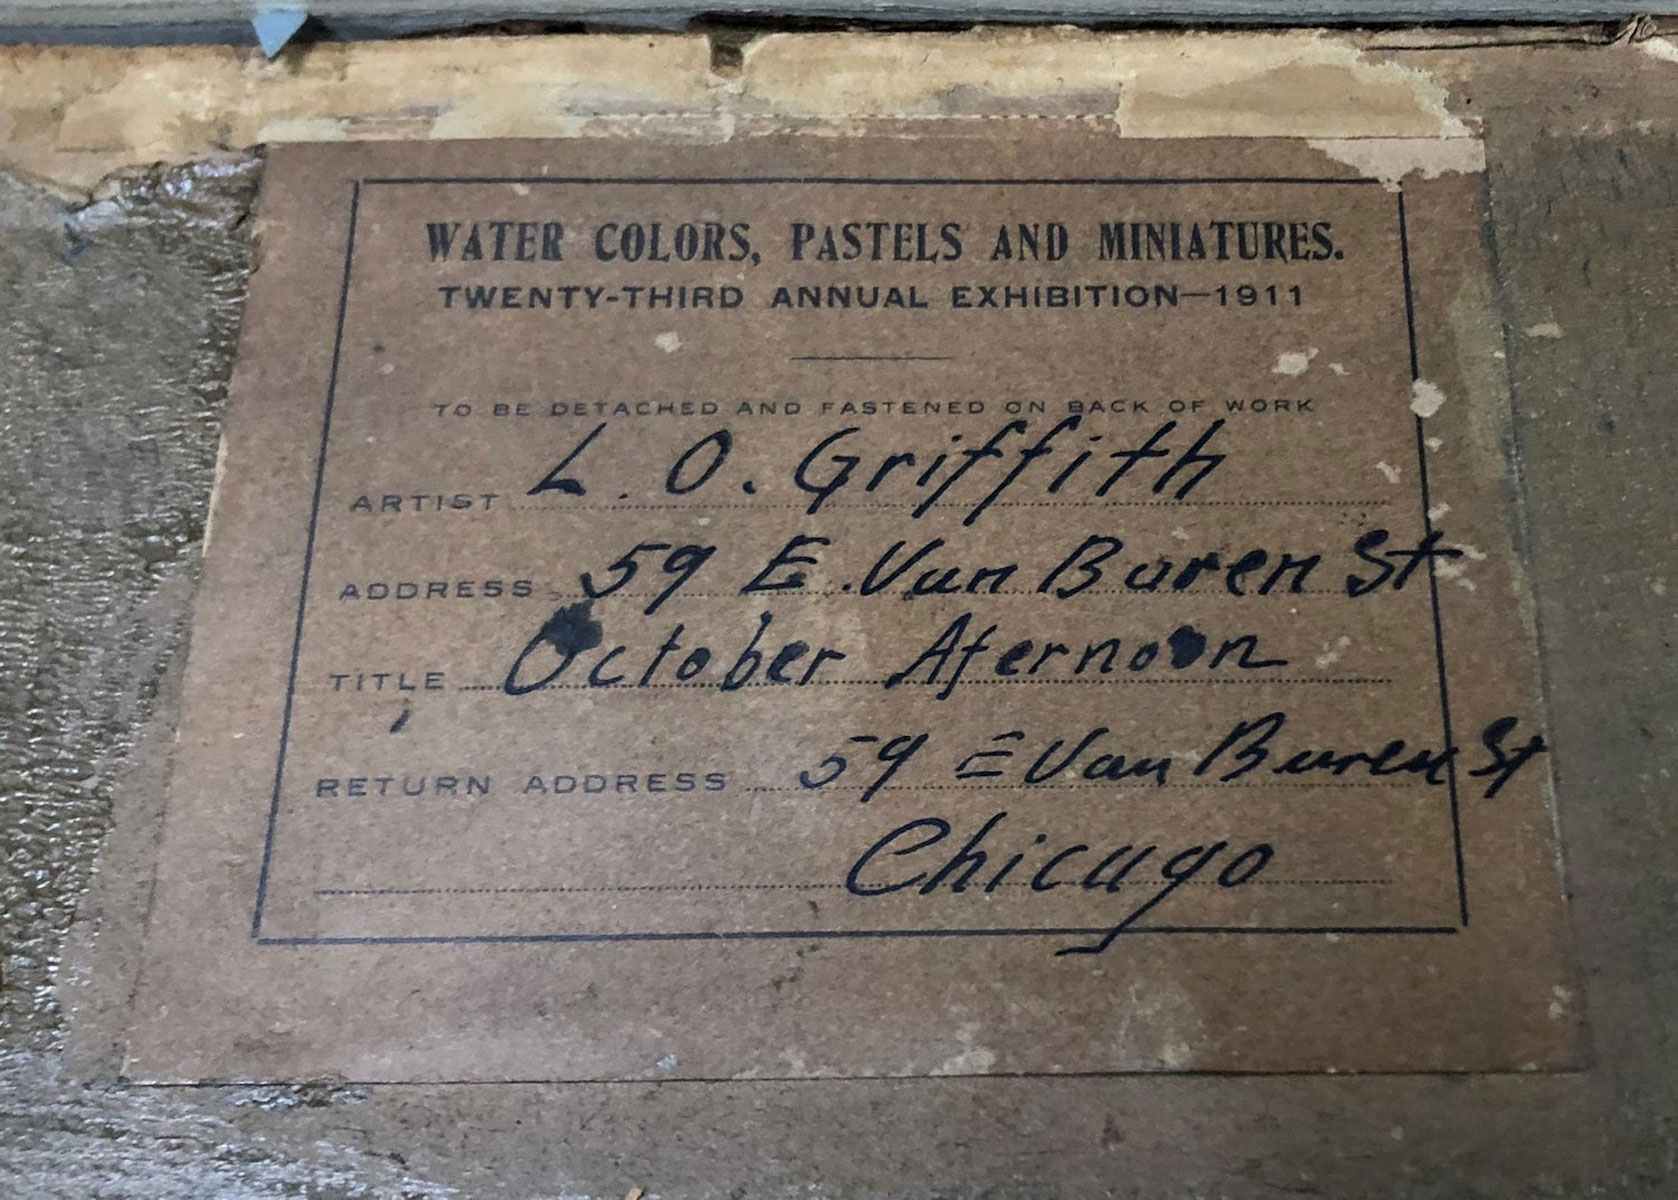 WATER COLORS, PASTELS AND MINIATURES.
TWENTY-THIRD ANNUAL EXHIBITION—1911
TO BE DETACHED AND FASTENED ON BACK OF WORK
ARTIST L. O. Griffith
ADDRESS 59 E. Van Buren St
TITLE October Afernoon
RETURN ADDRESS 59 E Van Buren St
Chicago